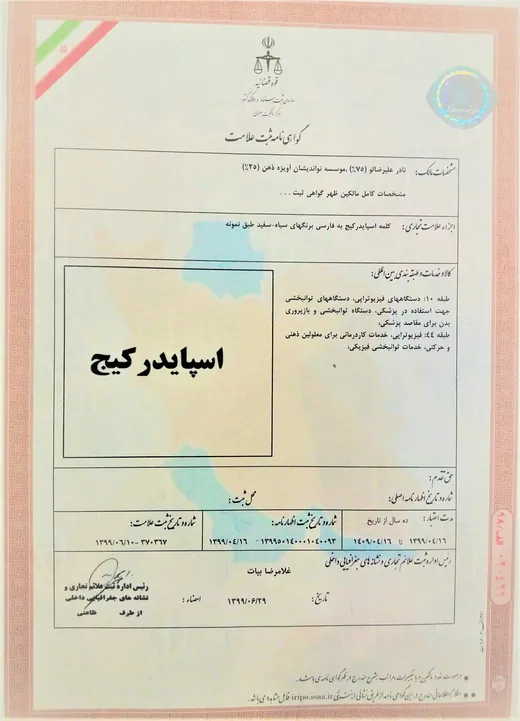 قوه قضائیه
سازمان ثبت اسناد و املاک کشور
مرکز مالکیت معنوی
گواهی نامه ثبت علامت
مشخصات مالک: نادر علیرضالو (۷۵%) ،موسسه نواندیشان آویژه ذهن (۲۵%)
مشخصات کامل مالکین ظهر گواهی ثبت . . .
اجزاء علامت تجاری: کلمه اسپایدرکیج به فارسی برنگهای سیاه-سفید طبق نمونه
کالا و خدمات و طبقه بندی بین المللی:
طبقه ۱۰: دستگاههای فیزیوتراپی، دستگاههای توانبخشی
جهت استفاده در پزشکی، دستگاه توانبخشی و بازپروری
بدن برای مقاصد پزشکی،
طبقه ۴۴: فیزیوتراپی، خدمات کاردرمانی برای معلولین ذهنی
و حرکتی، خدمات توانبخشی فیزیکی،
اسپایدرکیج
حق تقدم:
شماره و تاریخ اظهارنامه اصلی: محل ثبت:
مدت اعتبار: ده سال از تاریخ
۱۳۹۹/۰۴/۱۶ تا ۱۴۰۹/۰۴/۱۶
شماره و تاریخ ثبت اظهارنامه:
۱۳۹۹۵۰۱۴۰۰۰۱۰۴۰۰۹۳ - ۱۳۹۹/۰۴/۱۶
شماره و تاریخ ثبت علامت:
۳۷۰۳۶۷ - ۱۳۹۹/۰۶/۱۰
رئیس اداره ثبت علائم تجاری و نشانه های جغرافیایی داخلی
غلامرضا بیات
تاریخ: ۱۳۹۹/۰۶/۲۹ امضاء:
رئیس اداره ثبت علائم تجاری و
نشانه های جغرافیایی داخلی
از طرف
در صورت تعدد مالکین و یا تغییرات، مراتب بشرح مندرج در ظهر گواهی نامه می باشد.
اقلام اطلاعاتی مندرج در این گواهی نامه از طریق نشانی اینترنتی iripo.ssaa.ir قابل مشاهده می باشد.